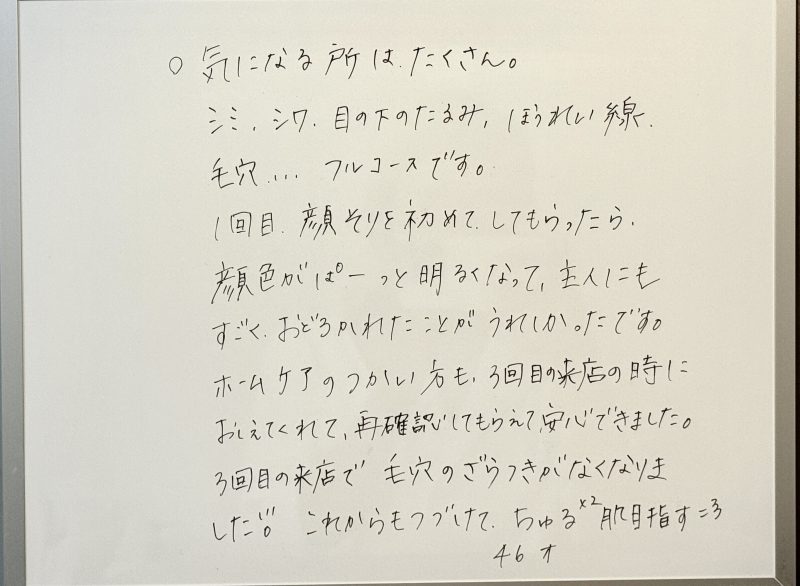 ○ 気になる所は、たくさん。
シミ、シワ、目の下のたるみ、ほうれい線、
毛穴... フルコースです。
1回目、顔そりを初めて、してもらったら、
顔色がぱーっと明るくなって、主人にも
すごく、おどろかれたことがうれしかったです。
ホームケアのつかい方も、3回目の来店の時に
おしえてくれて、再確認してもらえて安心できました。
3回目の来店で 毛穴のざらつきがなくなりま
した!! これからもつづけて、ちゅる×2肌目指す=3
46才